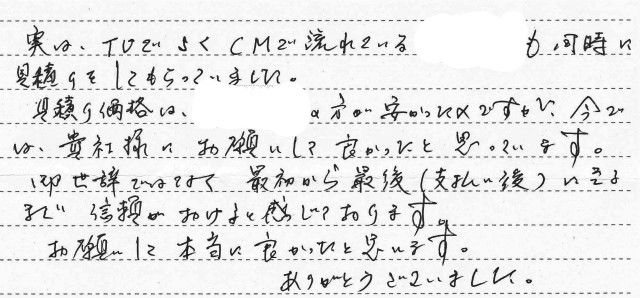 実は、TVでよくCMで流れている も同時に
見積りをしてもらっていました。
見積り価格は、 の方が安かったのですが、今で
は、貴社様にお願いして良かったと思っています。
御世辞ではなく最初から最後(支払い後)にまで
信頼がおけると感じております。
お願いして本当に良かったと思います。
ありがとうございました。